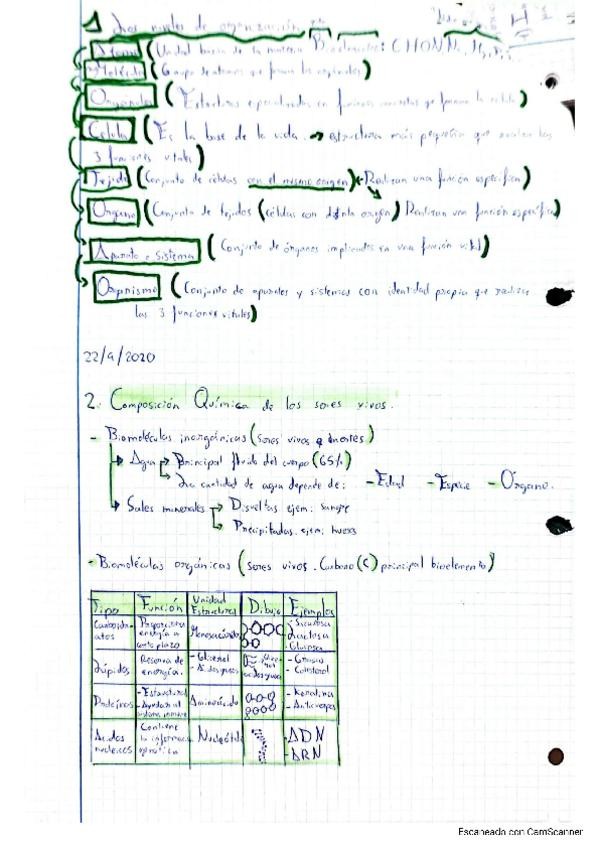 1 Los niveles de organización
Átomo (Unidad básica de la materia Bioelementos: CHON
Molécula (Grupo de átomos que forman los
Orgánulo (Estructuras especializadas en funciones concretas que forman la célula)
Célula (Es la base de la vida. → estructura más pequeña que realiza las
3 funciones vitales)
Tejido (Conjunto de células con el mismo origen) Realizan una función específica)
Órgano (Conjunto de tejidos (células con distinto origen) Realizan una función específica)
Aparato o Sistema (Conjunto de órganos implicados en una función vital)
Organismo (Conjunto de aparatos y sistemas con identidad propia que realiza
las 3 funciones vitales)
22/9/2020
2. Composición Química de los seres vivos.
- Biomoléculas inorgánicas (seres vivos e inertes)
→ Agua → Principal fluido del cuerpo (65%)
→ La cantidad de agua depende de: - Edad - Especie - Órgano.
→ Sales minerales → Disueltas ejem: sangre
→ Precipitadas. ejem: huesos
- Biomoléculas orgánicas (seres vivos. Carbono (C) principal bioelemento)
Tipo Función Unidad Estructural Dibujo Ejemplos
Carbohidratos Proporciona energía a corto plazo Monosacárido - Sacarosa - Lactosa - Glucosa
Lípidos Reserva de energía. - Glicerol - Ácidos grasos - Grasas - Colesterol
Proteínas - Estructural - Ayudan al sistema inmune Aminoácido - Keratina - Anticuerpos
Ácidos nucleicos Contiene la información genética Nucleótido - ADN - ARN
Escaneado con CamScanner